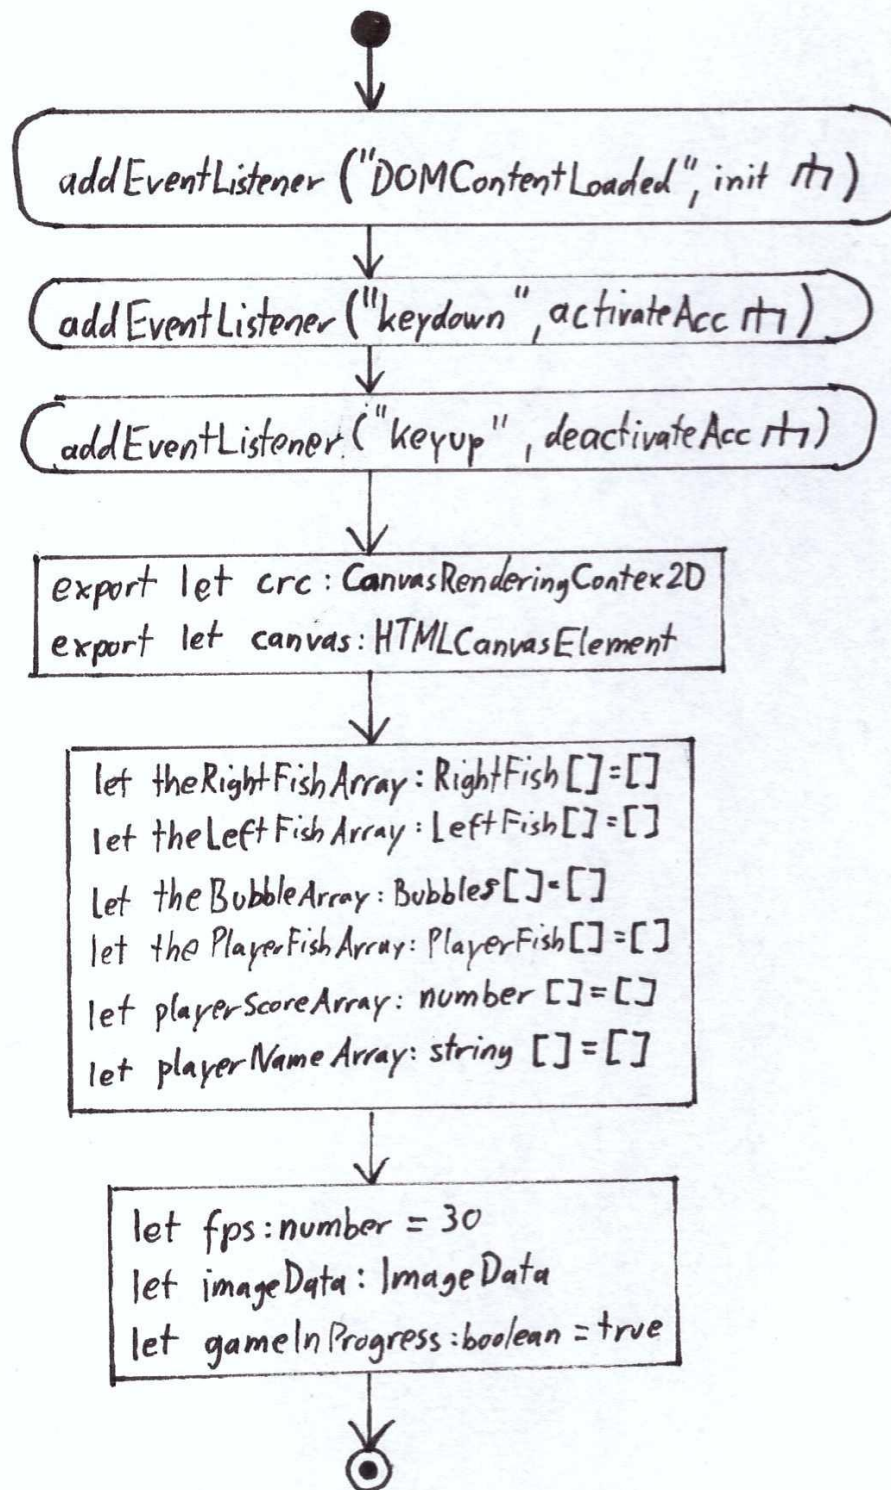 addEventListener ("DOMContentLoaded", init )
addEventListener ("keydown", activateAcc )
addEventListener ("keyup", deactivateAcc )
export let crc : CanvasRenderingContex2D
export let canvas : HTMLCanvasElement
let theRightFishArray : RightFish [] = []
let theLeftFishArray : LeftFish [] = []
let theBubbleArray : Bubbles [] = []
let thePlayerFishArray : PlayerFish [] = []
let playerScoreArray : number [] = []
let playerNameArray : string [] = []
let fps : number = 30
let imageData : ImageData
let gameInProgress : boolean = true